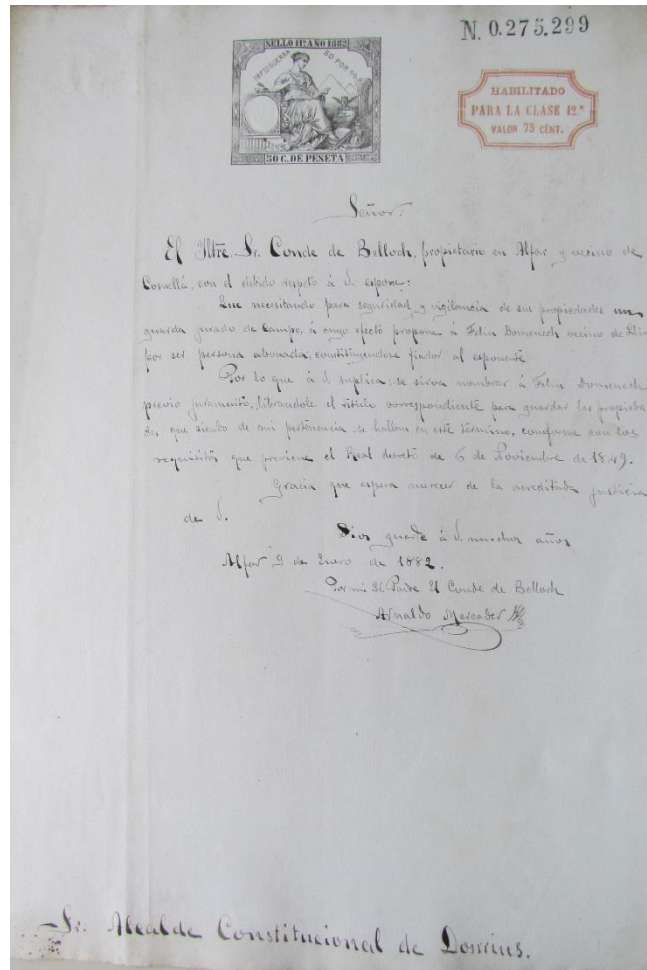 N. 0.275.299
SELLO 11º AÑO 1882
IMPTO GUERRA 50 POR 100
50 C. DE PESETA
HABILITADO
PARA LA CLASE 12.ª
VALOR 75 CÉNT.
Señor:
El Iltre. Sr. Conde de Belloch, propietario en Alfar y vecino de
Cornellá, con el debido respeto á S. espone:
Que necesitando para seguridad y vigilancia de sus propiedades un
guarda jurado de Campo, á cuyo efecto propone á Feliu Domenech vecino de
por ser persona abonada, constituyendose fiador al esponente
Por lo que á S. suplica; se sirva nombrar á Feliu Domenech
previo juramento, librandole el titulo correspondiente para guardar las propieda
des, que siendo de mi pertenencia se hallan en este término, conforme con los
requisitos que previene el Real decreto de 6 de Noviembre de 1849.
Gracia que espera merecer de la acreditada justicia
de S.
Dios guarde á S. muchos años
Alfar 9 de Enero de 1882.
Por mi Sr. Padre El Conde de Belloch
Arnaldo Mercader
Sr. Alcalde Constitucional de Dosrius.